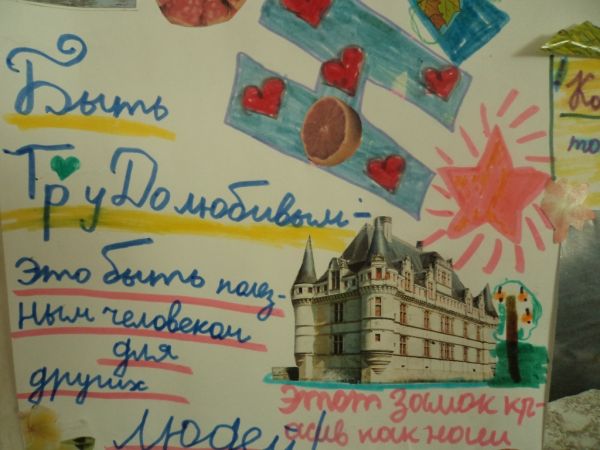 Быть
ТруДолюбивым-
это быть полез-
ным человеком
для
других
людей!
этот замок кр-
асив как ноги
Ка
то